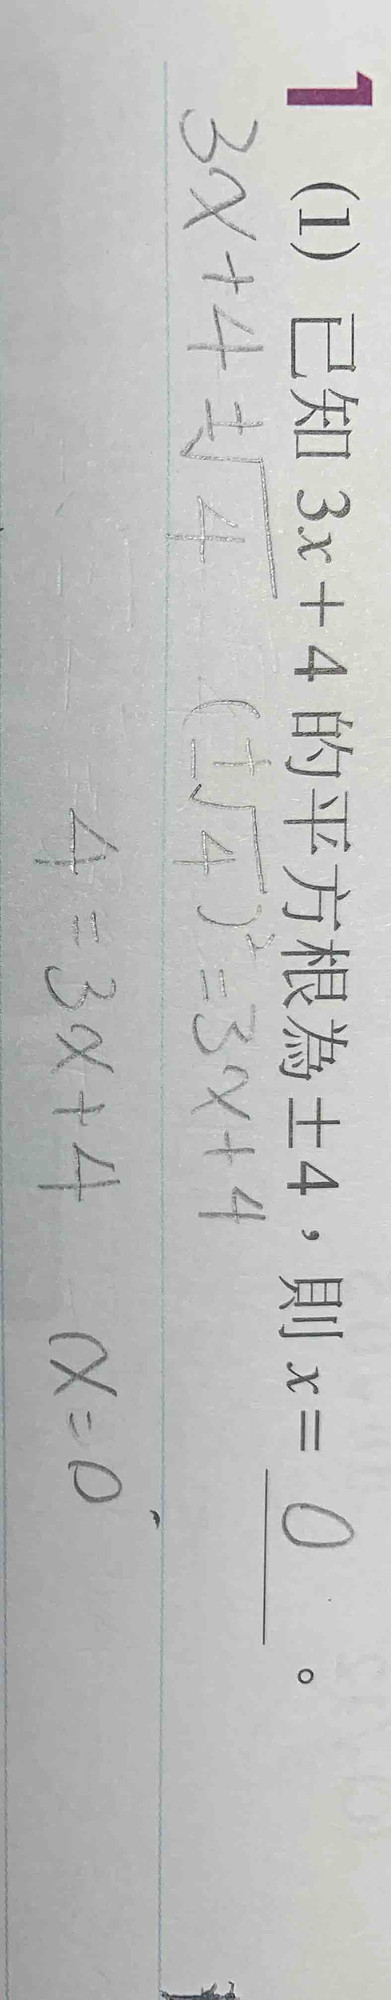 1 (1) 已知 3x+4 的平方根為±4，則 x= 0 。
3x+4 ±√4 (±√4)²=3x+4
4=3x+4 x=0